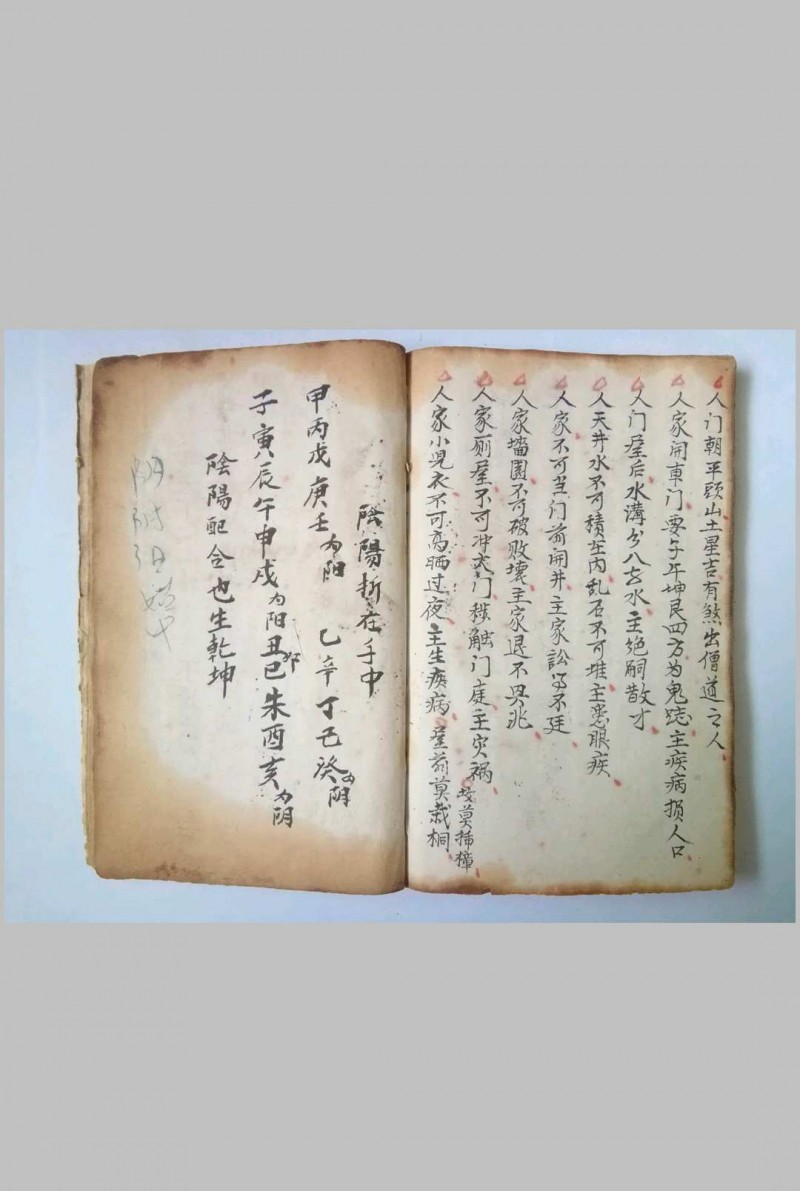 人门朝平头山土星吉有煞出僧道之人
人家開東门要子午坤艮四方为鬼跷主疾病损人口
人门屋后水溝分八字水主绝嗣散才
人天井水不可積在内乱石不可堆主患眼疾
人家不可当门前開井主家訟
人家墙園不可破败壊主家退不兴兆
人家厕屋不可冲大门秽触门庭主灾祸
人家小児衣不可高晒过夜主生疾病 屋前莫栽桐
后莫插樟
陰陽在手中
甲丙戊庚壬为阳 乙辛丁己癸为阴
子寅辰午申戌为阳丑卯巳未酉亥为阴
陰陽配合也生乾坤